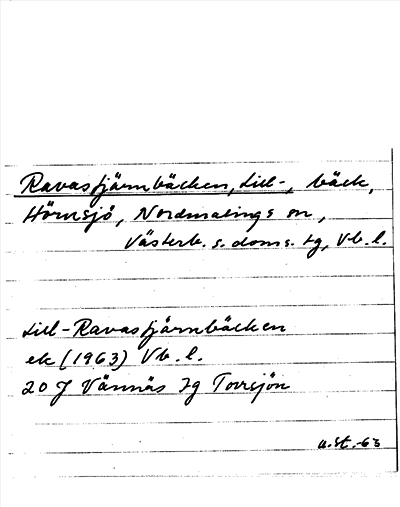 Ravastjärnbäcken, Lill-, bäck,
Hörnsjö, Nordmalings sn,
Västerb. s. doms. tg, Vb. l.
Lill-Ravastjärnbäcken
ek (1963) Vb. l.
20 J Vännäs Jg Torrsjön
u.st.-63